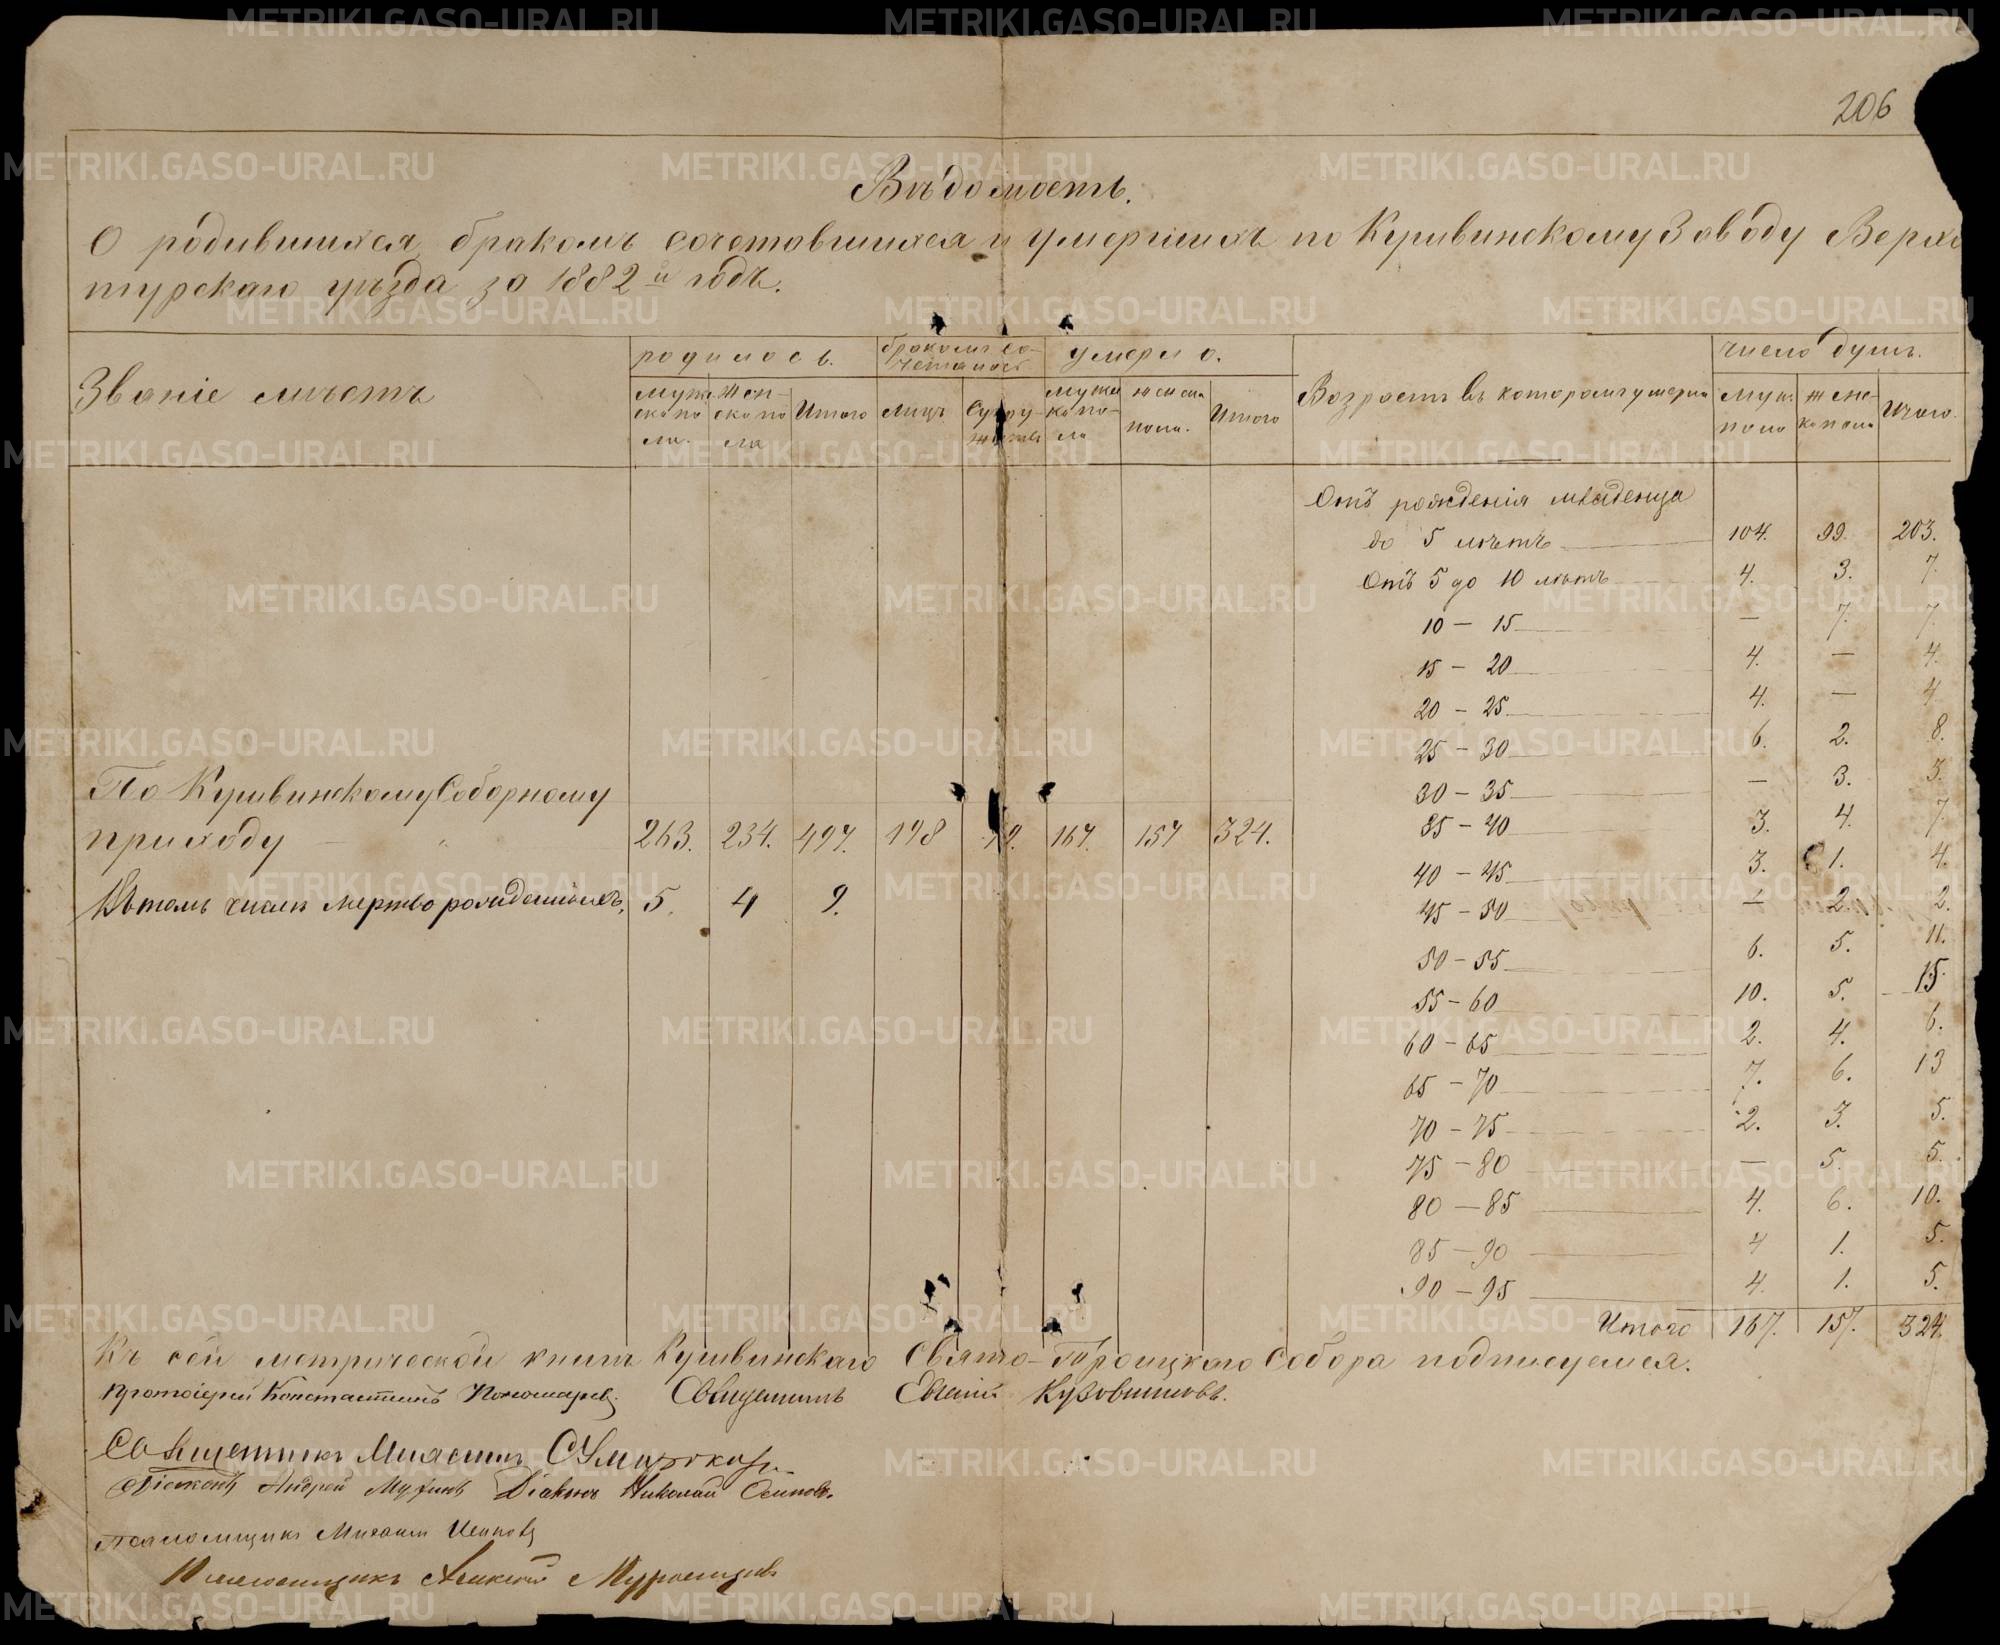 206
Вѣдомость.
О родившихся, бракомъ сочетавшихся и умершихъ по Кушвинскому Заводу Верхо
турскаго уѣзда за 1882 й годъ.
Званіе мѣстъ
родилось.
бракомъ со-
четалось
умерло.
Возрастъ въ которомъ умерли
число душъ.
Муже
ска по
ла.
Жен-
ска по
ла
Итого
лицъ
Супру-
жествъ
мужес
ка по-
ла
женска
пола.
Итого
муж.
пола
женс-
ка пола
Итого.
Отъ рожденія младенца
до 5 лѣтъ 104. 99. 203.
Отъ 5 до 10 лѣтъ 4. 3. 7.
10 - 15 — 7. 7.
15 - 20 4. — 4.
20 - 25 4. — 4.
25 - 30 6. 2. 8.
30 - 35 — 3. 3.
35 - 40 3. 4. 7.
40 - 45 3. 1. 4.
45 - 50 — 2. 2.
50 - 55 6. 5. 11.
55 - 60 10. 5. 15.
60 - 65 2. 4. 6.
65 - 70 7. 6. 13
70 - 75 2. 3. 5.
75 - 80 — 5. 5.
80 - 85 4. 6. 10.
85 - 90 4 1. 5.
90 - 95 4. 1. 5.
Итого 167. 157. 324.
По Кушвинскому Соборному
приходу 263. 234. 497. 198 9. 167. 157 324.
Въ томъ числѣ мертворожденныхъ, 5. 4 9.
Къ сей метрической книгѣ Кушвинскаго Свято-Троицкаго Собора подписуемся.
Протоіерей Константинъ Пономаревъ. Священникъ Евгеній Кузовниковъ.
Священникъ
Діаконъ Андрей Діаконъ Николай Осиповъ.
Псаломщикъ Михаилъ
Псаломщикъ Алексій
METRIKI.GASO-URAL.RU